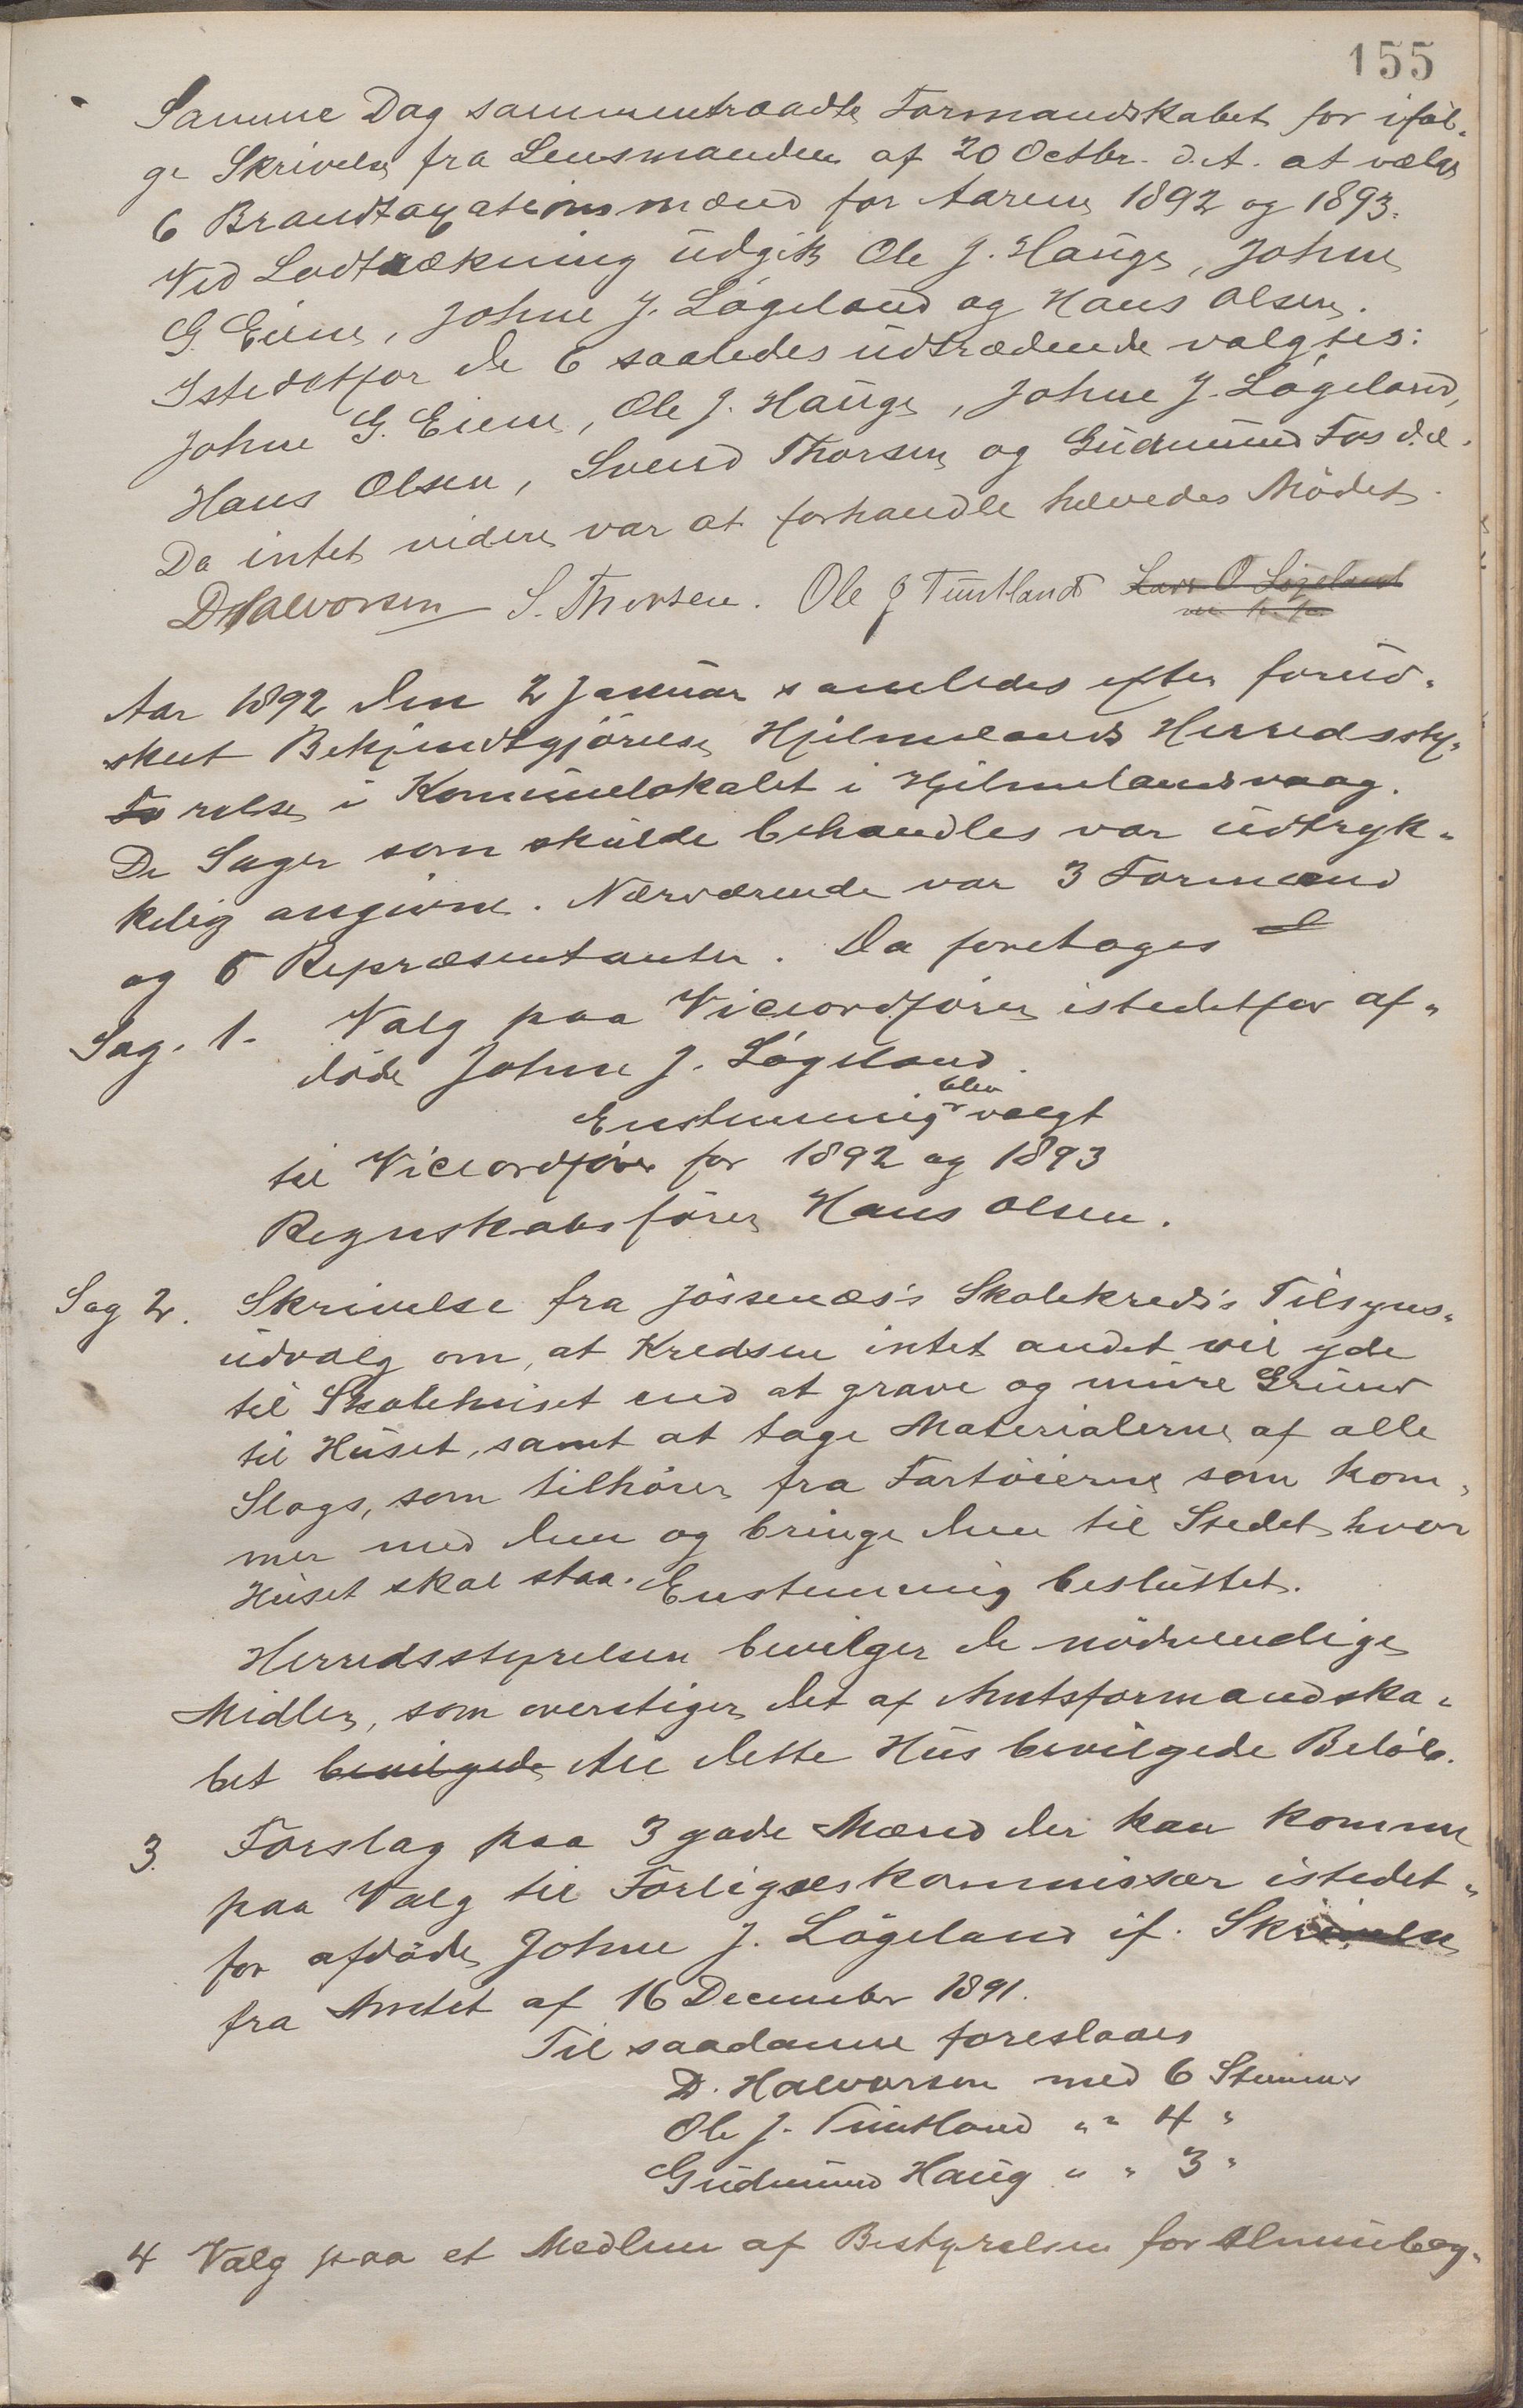 155
Samme Dag sammentraadte Formandskabet for iføl-
ge Skrivelse fra Lensmanden af 20 Octbr. d.A. at vælge
6 Brandtaxationsmænd for Aarene 1892 og 1893.
Ved Lodtrækning udgik Ole J. Hauge, Johne
G. Eiene, Johne J. Løgeland og Hans Olsen.
Istedetfor de 6 saaledes udtrædende valgtes:
Johne G. Eiene, Ole J. Hauge, Johne J. Løgeland,
Hans Olsen, Svend Thorsen og Gudmund Fosdal.
Da intet videre var at forhandle hævedes Mødet.
D Halvorsen S. Thorsen. Ole J Tuntland Lars O Løgeland
m. p. p.
Aar 1892 den 2 Januar samledes efter forud-
skeet Bekjendtgjørelse Hjelmelands Herredssty-
relse i Kommunelokalet i Hjelmelandsvaag.
De Sager som skulde behandles var udtryk-
kelig angivne. Nærværende var 3 Formænd
og 5 Repræsentanter. Da foretoges
Sag. 1. Valg paa Viceordfører istedetfor af-
døde Johne J. Løgeland.
Enstemmig blev valgt
til Viceordfører for 1892 og 1893
Regnskabsfører Hans Olsen.
Sag 2. Skrivelse fra Jøssenæs's Skolekreds's Tilsyns-
udvalg om, at Kredsen intet andet vil yde
til Skolehuset end at grave og mure Grund
til Huset, samt at tage Materialerne af alle
Slags, som tilhører fra Fartøierne som kom-
mer med dem og bringe dem til Stedet hvor
Huset skal staa. Enstemmig besluttet.
Herredsstyrelsen bevilger de nødvendige
Midler, som overstiger det af Amtsformandska-
bet bevilgede til dette Hus bevilgede Beløb.
3. Forslag paa 3 gode Mænd der kan komme
paa Valg til Forligelseskommissær istedet-
for afdøde Johne J. Løgeland if. Skrivelse
fra Amtet af 16 December 1891.
Til saadanne foreslaaes
D. Halvorsen med 6 Stemmer
Ole J. Tuntland " " 4 "
Gudmund Haug " " 3 "
4 Valg paa et Medlem af Bestyrelsen for Almuebog-